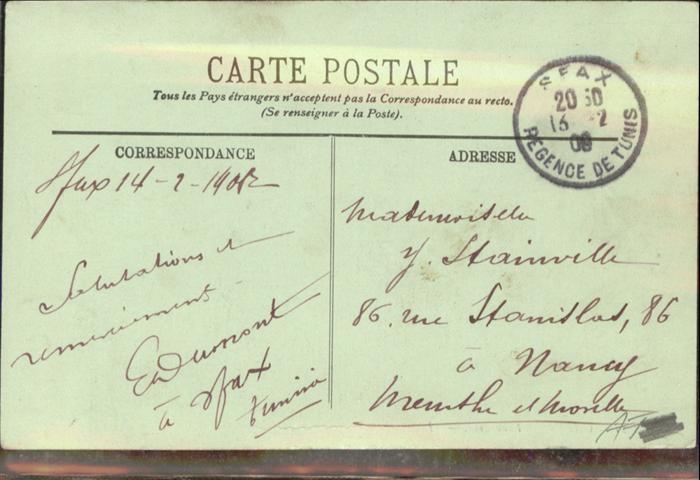 CARTE POSTALE
Tous les Pays étrangers n'acceptent pas la Correspondance au recto.
(Se renseigner à la Poste).
SFAX
20 30
13 -2
09
REGENCE DE TUNIS
CORRESPONDANCE
Sfax 14-2-190
Salutations et
remerciement
Ed Dumont
à Sfax
Tunisie
ADRESSE
Mademoiselle
Y. Stainville
86. rue Stanislas, 86
à Nancy
Meurthe et Moselle